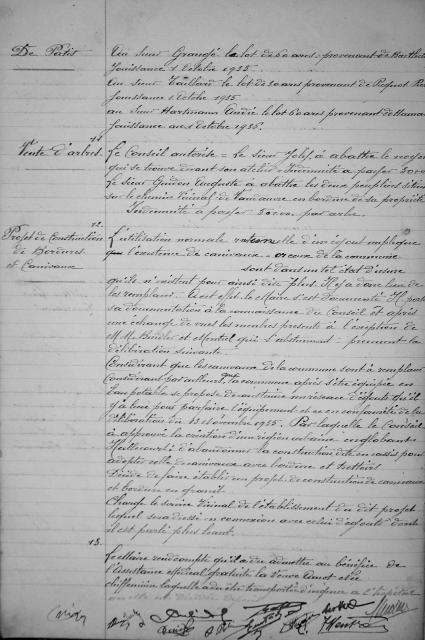 De Pâtis
Au Sieur Grangé le lot de 60 ares provenant de Barthele
Jouissance 1 Octobre 1935
Au Sieur Vaillard le lot de 20 ares provenant de
Jouissance 1 Octobre 1935.
au Sieur Hartmann André le lot 60 ares provenant de
Jouissance au 1 Octobre 1935.
11
Vente d'arbres.
Le Conseil autorise = Le Sieur Joly, à abattre le noyer
qui se trouve devant son atelier. Indemnité à payer
Le Sieur Guidon Auguste à abattre les deux peupliers situés
sur le chemin Vicinal de en bordure de sa propriété
Indemnité à payer par arbre.
12.
Projet de Construction
de Bordures
et Caniveaux
L'utilisation normale et d'un égout implique
que l'existence de caniveaux. or ceux de la commune
sont dans un tel état d'usure
qu'ils n'existent pour ainsi dire plus. Il y a donc lieu de
les remplacer. le Maire s'est documenté. Il porte
sa documentation à la connaissance du Conseil et après
un échange de vues les membres présents à l'exception de
M.M. et qui s'abstiennent : prennent la
délibération suivante
Considérant que les caniveaux de la commune sont à remplacer
Considérant par ailleurs que la commune après s'être équipée en
Eau potable se propose de construire un réseau d'égouts qu'il
y a lieu pour parfaire l'équipement et ce en conformité de la
délibération du 13 Novembre 1935. Par laquelle le Conseil
a approuvé la création d'une région urbaine englobant
d'abandonner la construction dite en cassis pour
adopter celle de caniveaux avec bordure et trottoirs
Décide de faire établir un projet de construction de caniveaux
et bordure en granit.
Charge le service Vicinal de l'établissement du dit projet
lequel sera dressé en connexion avec celui d'égouts dont
il est parlé plus haut.
13.
Le Maire rend compte qu'il a dû admettre au bénéfice de
l'Assistance médicale gratuite la Veuve
laquelle a dû être transportée d'urgence à l'hôpital